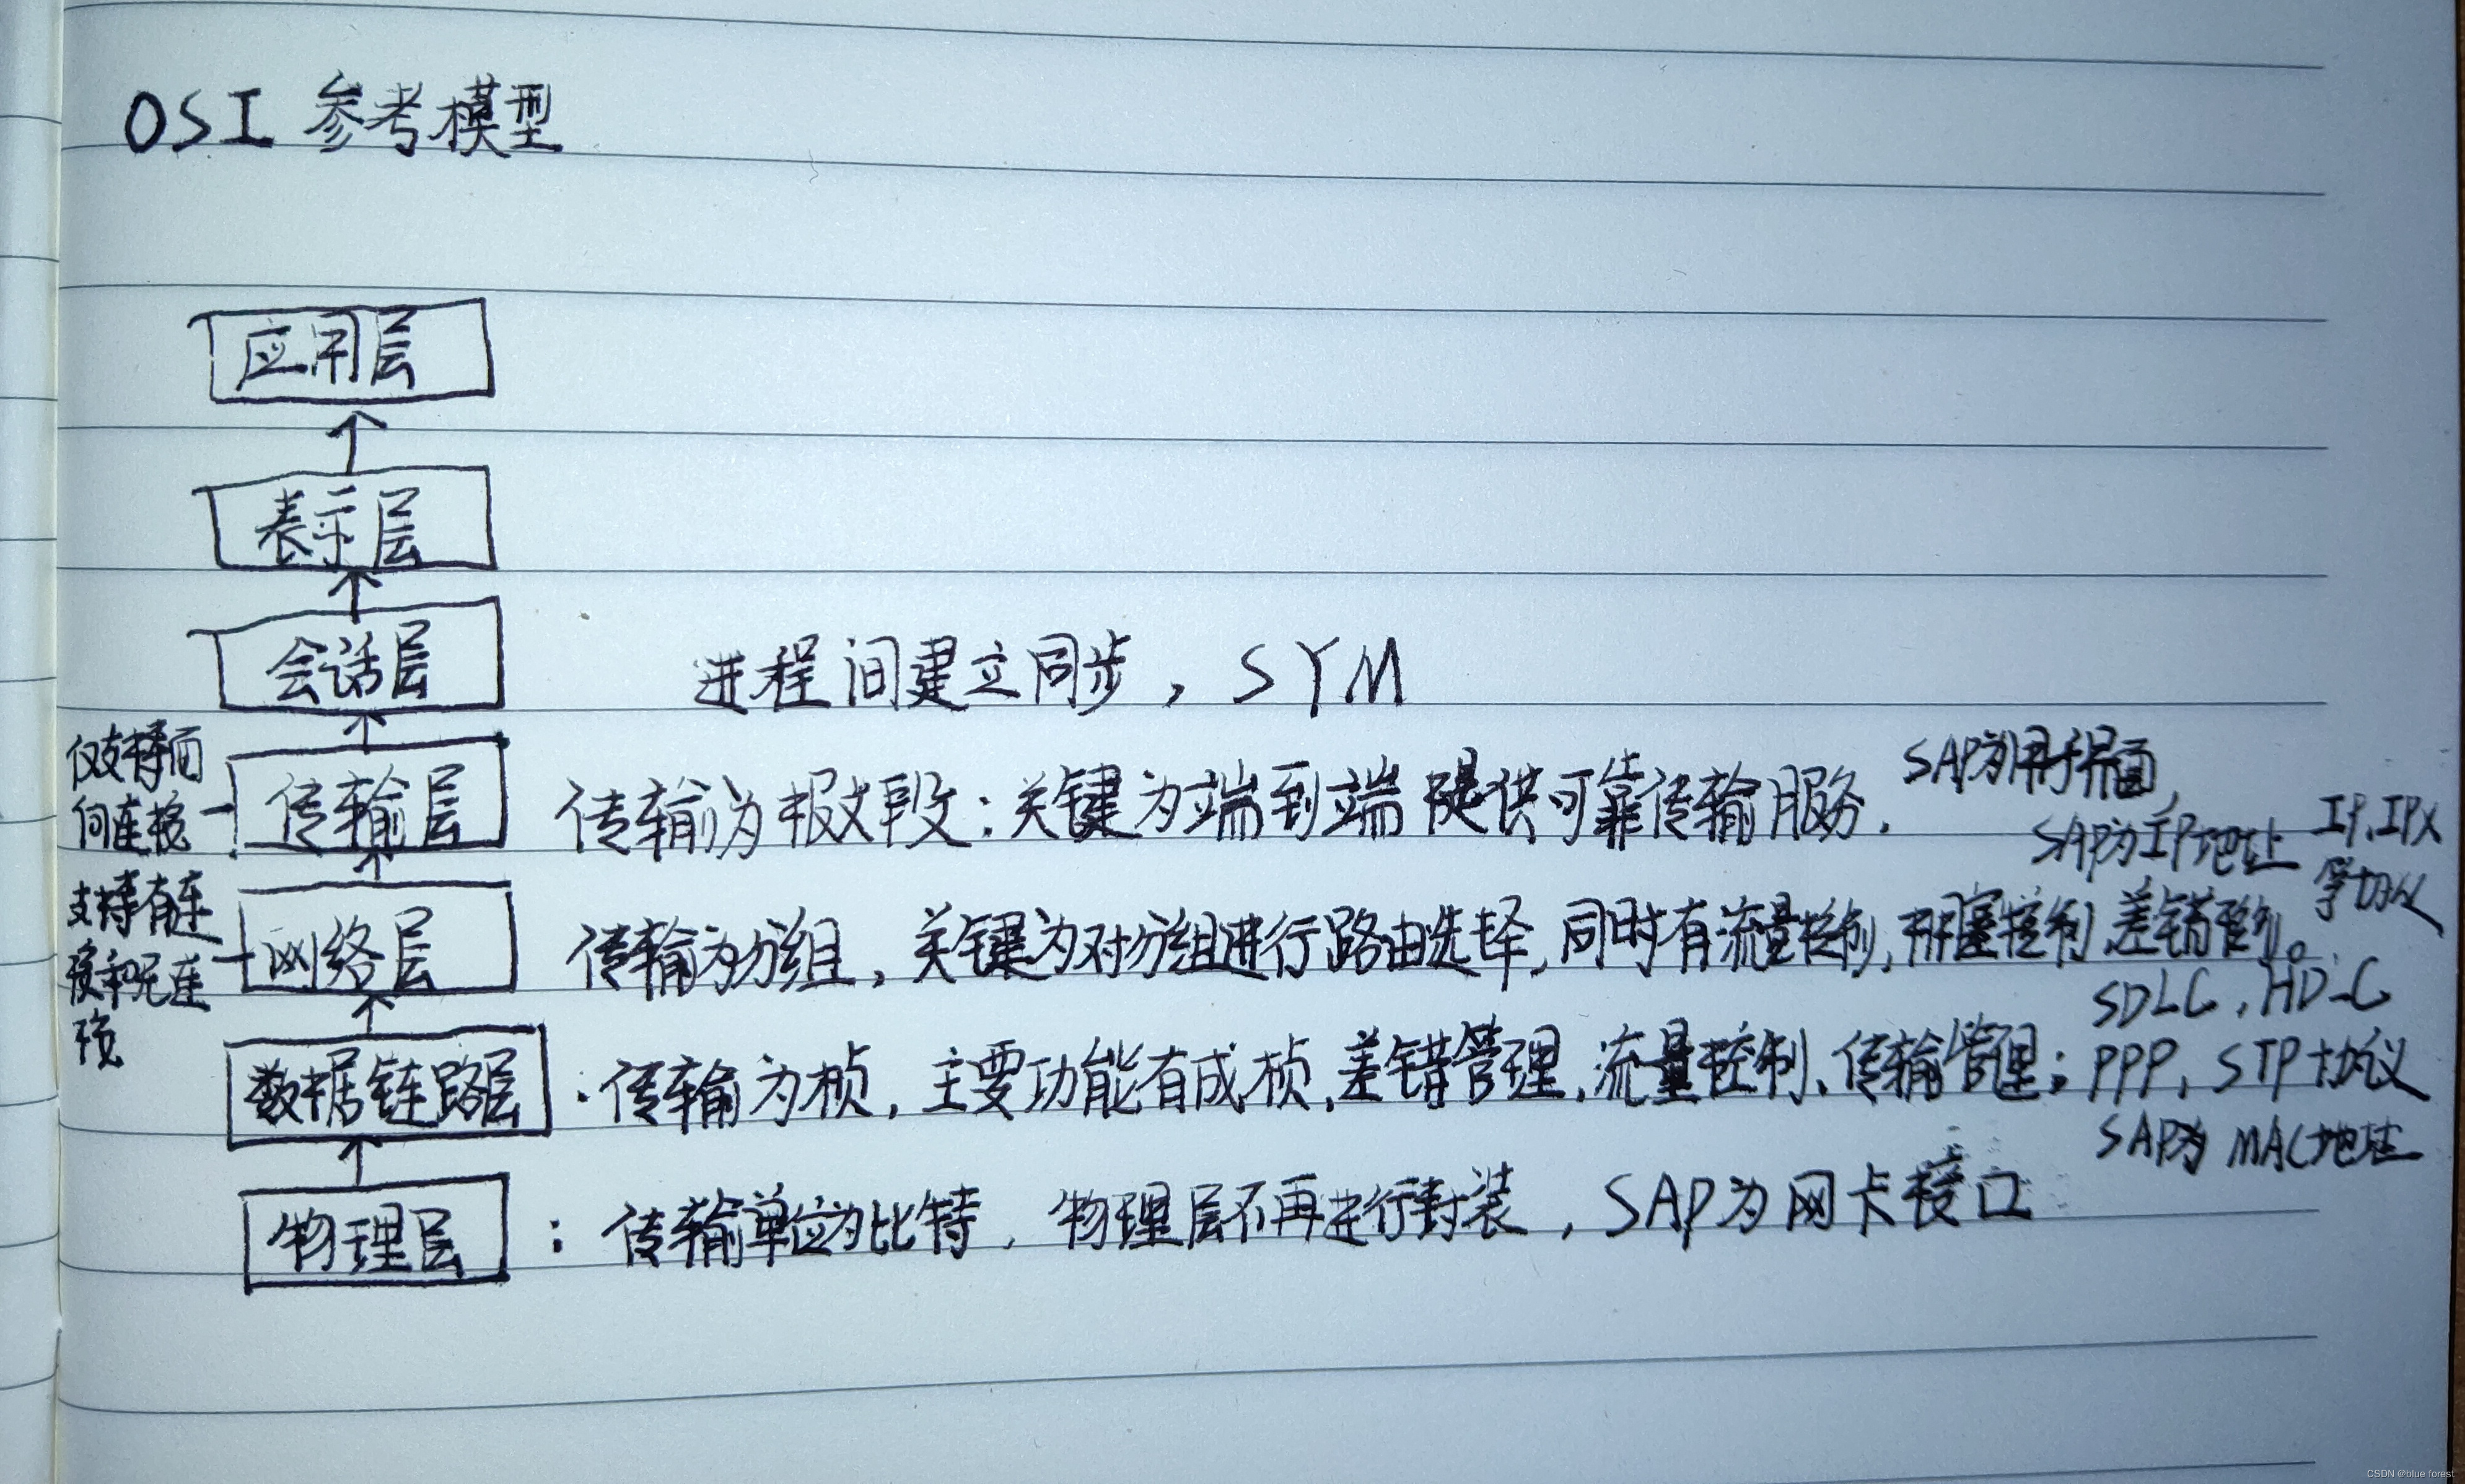 OSI 参考模型
应用层
表示层
会话层 进程间建立同步，SYM
仅支持面
向连接
传输层 传输为报文段：关键为端到端提供可靠传输服务.
SAP为用户界面,
SAP为IP地址 IP、IPX
等协议
支持有连
接和无连
接
网络层 传输为分组，关键为对分组进行路由选择，同时有流量控制，拥塞控制 差错控制。
SDLC，HDLC
数据链路层：传输为桢，主要功能有成桢，差错管理，流量控制、传输管理；PPP，STP协议
SAP为 MAC地址
物理层：传输单位为比特，物理层不再进行封装，SAP为网卡接口
CSDN @blue forest